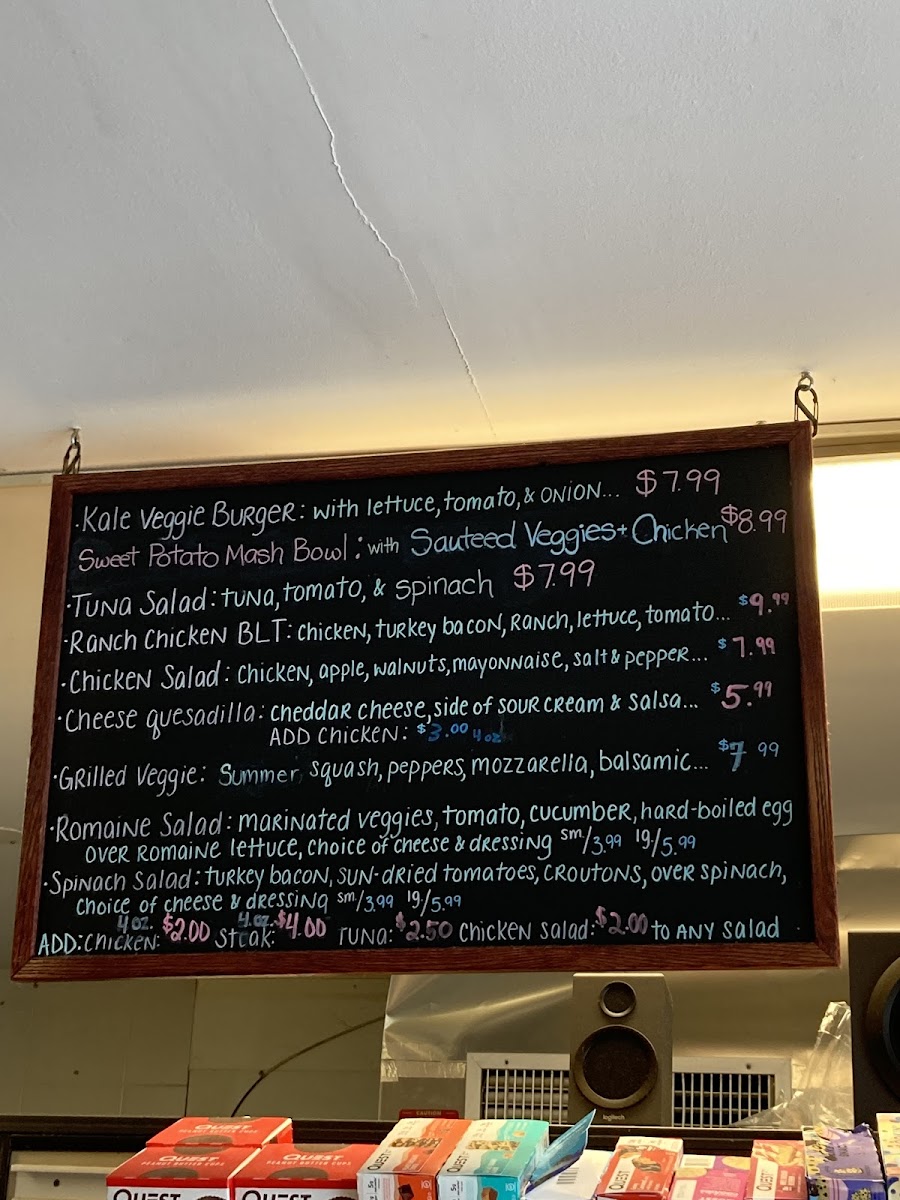 ·Kale Veggie Burger: with lettuce, tomato, & onion... $7.99
Sweet Potato Mash Bowl: with Sauteed Veggies + Chicken $8.99
·Tuna Salad: tuna, tomato, & spinach $7.99
·Ranch Chicken BLT: chicken, turkey bacon, ranch, lettuce, tomato... $9.99
·Chicken Salad: chicken, apple, walnuts, mayonnaise, salt & pepper... $7.99
·Cheese quesadilla: cheddar cheese, side of sour cream & salsa... $5.99
ADD Chicken: $3.00 4oz
·Grilled Veggie: Summer squash, peppers, mozzarella, balsamic... $7 99
·Romaine Salad: marinated veggies, tomato, cucumber, hard-boiled egg
over romaine lettuce, choice of cheese & dressing sm/3.99 lg/5.99
·Spinach Salad: turkey bacon, sun-dried tomatoes, croutons, over spinach,
choice of cheese & dressing sm/3.99 lg/5.99
ADD: Chicken: 4 oz. $2.00 Steak: 4.oz. $4.00 Tuna: $2.50 Chicken salad: $2.00 to any salad
logitech
CAUTION
QUEST
PEANUT BUTTER CUPS
QUEST
PEANUT BUTTER CUPS
QUEST
QUEST
QUEST
QUEST
QUEST
QUEST